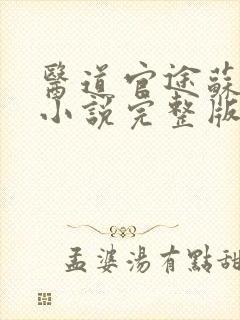 醫道官途蘇
小說完整版
孟婆湯有點甜